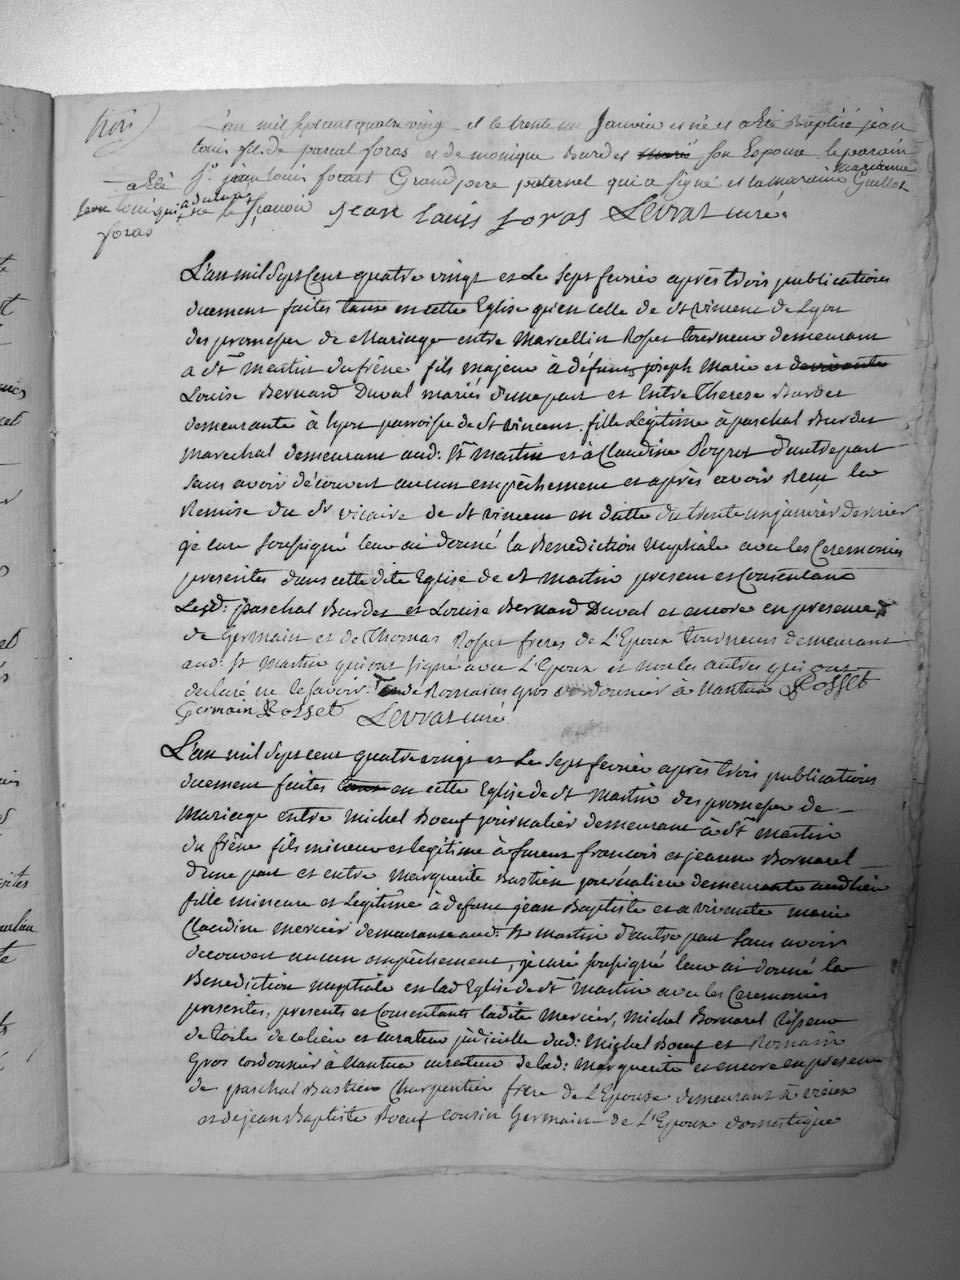 trois
L'an mil sept cent quatre vingt et le trente un Janvier est né et a été Baptisé jean
louis fils de pascal foras et de monique Burdet mariés son Epouse le parain
a Eté Sr. jean louis forast Grand pere paternel qui a signé et la maraine marianne Guillot
jean louis foras
Jean Louis foras Levrat curé.
L'an mil Sept Cent quatre vingt et Le Sept fevrier après trois publications
duement faites tant en cette Eglise qu'en celle de St vincent de Lyon
des promesses de Mariage entre Marcellin Rosset tourneur demeurant
a St martin du frêne fils majeur à défunt joseph Marie et de vivante
Louise Bernard Duval mariés d'une part et Entre Therese Burdet
demeurante à lyon parroisse de St vincent fille Légitime à paschal Burdet
marechal demeurant aud: St martin et à Claudine Poyrot d'autre part
sans avoir découvert aucun empêchement et après avoir Reçu la
Remise du Sr vicaire de St vincent en datte du trente un janvier dernier
je curé soussigné leur ai donné la Benediction nuptiale avec les Ceremonies
prescrites dans cette dite Eglise de St martin present et Consentans
Lesd: paschal Burdet et Louise Bernard Duval et encore en presence
de Germain et de Thomas Rosset freres de L'Epoux tourneurs demeurant
aud: St Martin qui ont signé avec L'Epoux et non les autres qui ont
declaré ne le savoir de Romain gros cordonnier à Nantua Rosset
Germain Rosset Levrat curé
L'an mil Sept cent quatre vingt et Le Sept fevrier après trois publications
duement faites tant en cette Eglise de St Martin des promesses de
Mariage entre Michel Boeuf journalier demeurant à St martin
du frêne fils mineur et légitime à furent francois et jeanne Bornarel
d'une part et entre Marguerite Bastien journaliere demeurante audit lieu
fille mineure et Légitime à defunt jean Baptiste et a vivante marie
Claudine mercier demeurante aud: St martin d'autre part Sans avoir
decouvert aucun empêchement, je curé soussigné leur ai donné la
Benediction nuptiale en lad Eglise de St Martin avec les Ceremonies
prescrites, presents et Consentants ladite Mercier, Michel Bornarel tisseur
de toile de ce lieu et curateur judicielle dud: Michel Boeuf et Romain
Gros cordonnier à Nantua curateur de lad: Marguerite et encore en presence
de paschal Bastien Charpentier frere de L'Epouse demeurant à
et de jean Baptiste Boeuf cousin Germain de L'Epoux domestique